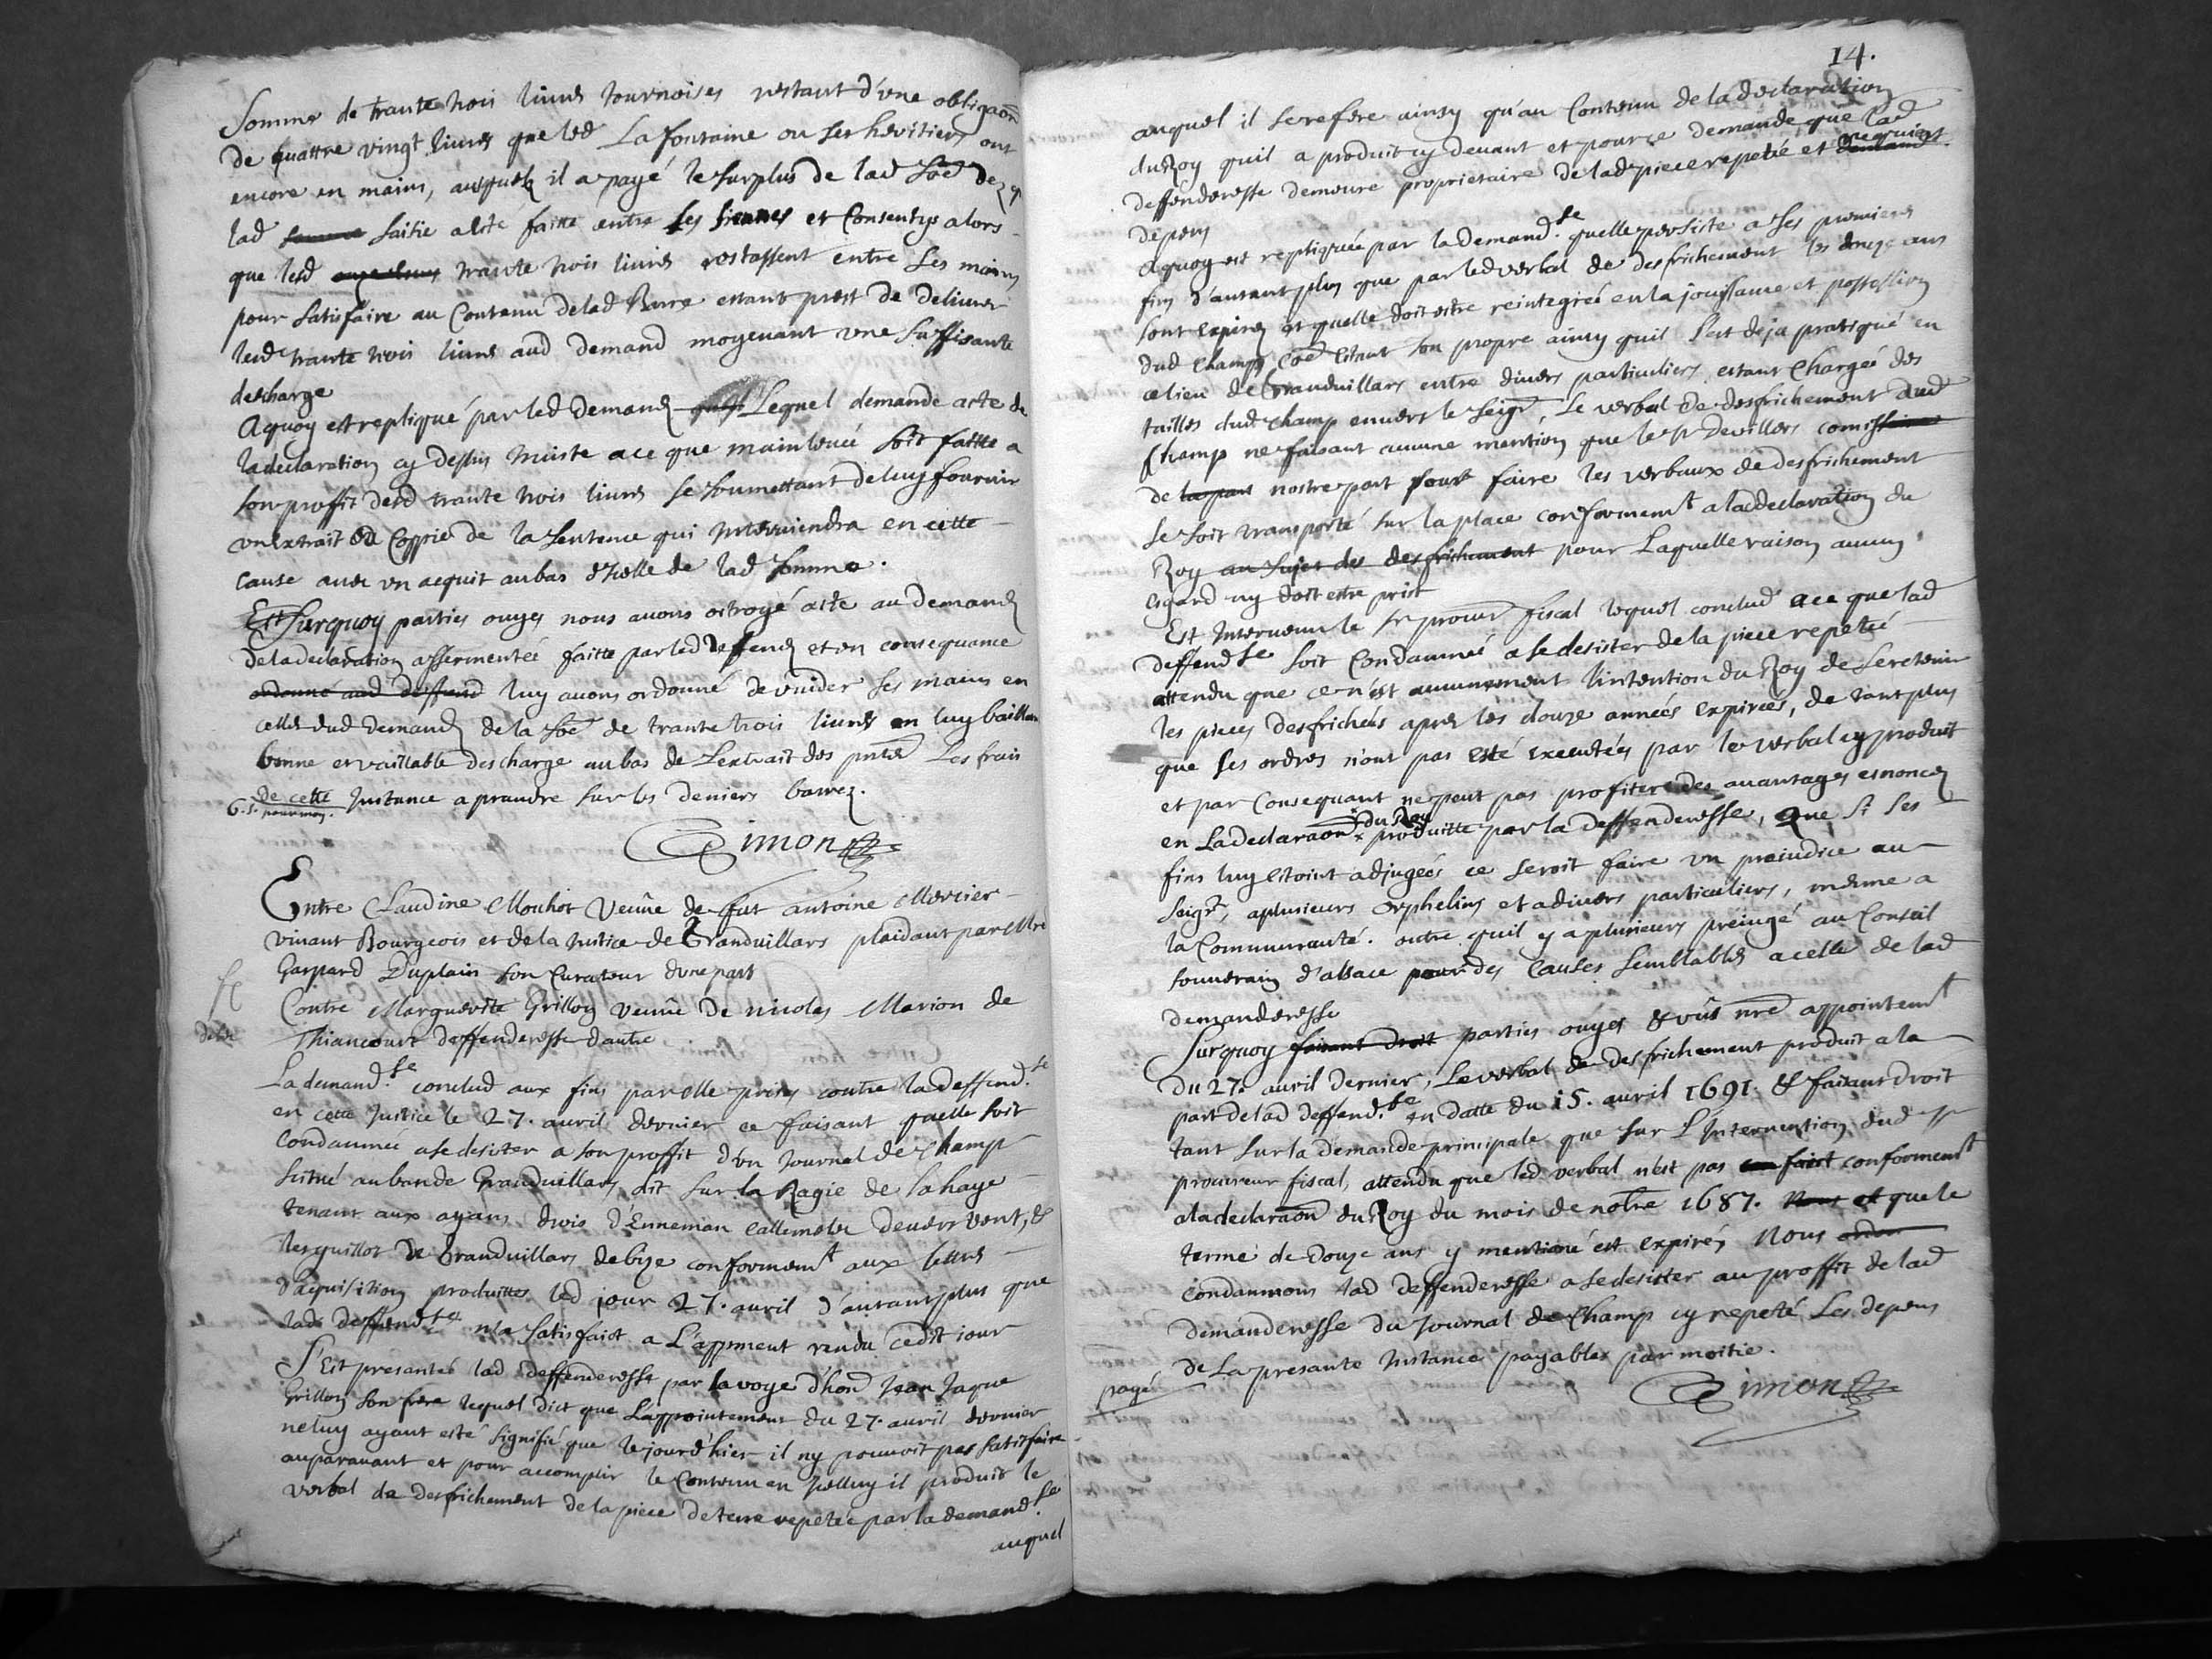 Somme de trante trois livres tournoises restant d'une obligaōn
de quattre vingt livres que led La fontaine ou ses heritiers ont
encore en mains, ausquelz il a payé le surplus de lad soē
lad saisie a esté faitte entre ses siennes et Consentys alors
que lesd trante trois livres restassent entre ses mains
pour satisfaire au Contenu de lad Barre estant prest de delivrer
lesd trante trois livres aud demand moyenant une suffisante
descharge
Aquoy est repliqué par led demand Lequel demande acte de
la declaration cy dessus Insiste a ce que mainlevée soit faitte a
son proffit desd trante trois livres se soumettant de luy fournir
un Extrait de la sentence qui Interviendra en cette
cause avec un acquit au bas d'Icelle de lad somme.
Surquoy parties ouyes nous avons octroyé acte au demand
de la declaration assermentée faitte par led deffend et en consequance
ordonné aud deffend luy avons ordonné de vuider ses mains en
celles dud demand de la soē de trante trois livres en luy baillant
bonne et vaillable descharge au bas de L'extrait des pntes Les frais
de cette Instance a prandre sur les deniers barrez.
G. s. pour moy.
Simon
Entre Claudine Mouhot Veuve de fut antoine Mercier
vivant Bourgeois et de la Justice de Grandvillars plaidant par Mre
Gaspard Duplain son Curateur d'une part
Contre Marguerite Grillon veuve de nicolas Marion de
Thiancourt deffenderesse d'autre
La demand.se conclud aux fins par elle prises contre la deffend.se
en cette Justice le 27. avril dernier ce faisant quelle soit
Condamnée a se desister a son proffit d'un Journal de champ
situé au ban de Grandvillars, dit sur la Ragie de la haye
tenant aux ayans drois d'Enneman devers vent, &
de Grandvillars de bize conformemt aux lettres
d'aquisition produittes led jour 27. avril d'autant plus que
lade deffendte n'a satisfaict a L'appment rendu cedit iour
S'Est presantée lad deffenderesse par la voye d'hond Jean Jaque
Grillon son frere lequel dict que L'appointement du 27. avril dernier
ne luy ayant esté signifié que le jourd'hier il ny pouvoit pas satisfaire
auparavant et pour accomplir le Contenu en Icelluy il produit le
verbal de desfrichement de la piece de terre repetée par la demand.se
auquel
14.
auquel il se refere ainsy qu'au Contenu de la declaration
du Roy quil a produit cy devant et pource demande que lad
deffenderesse demeure proprietaire de lad piece repetée et requiert
depens
Aquoy est repliquée par la demand.se quelle persiste a ses premieres
fins d'autant plus que par led verbal de desfrichement les douze ans
sont expirez et quelle doit estre reintegrée en la jouissance et possession
dud champ Coē Estant son propre ainsy quil s'est deja pratiqué en
ce lieu de Grandvillars entre divers particuliers estant Chargée des
tailles dud champ envers le seigr, Le verbal de desfrichement dud
champ ne faisant aucune mention que le sr Devillers
de nostre part pour faire les verbaux de desfrichement
se soit transporté sur la place conformemt a lad declaration du
Roy au sujet des desfrichement pour Laquelle raison aucun
esgard ny doit estre prist
Est Intervenu le sr procur fiscal lequel conclud a ce que lad
deffendse soit Condamnée a se desister de la piece repetée
attendu que ce n'est aucunement l'intention du Roy de se retenir
les pieces desfrichées apres les douze années expirées, de tant plus
que ses ordres n'ont pas esté executées par le verbal cy produit
et par Consequant ne peut pas profiter des avantages esnoncez
en La declaraōn du Roy produitte par la deffenderesse, Que si ses
fins luy estoint adjugées ce seroit faire un preiudice au
seigr, a plusieurs orphelins et a divers particuliers, mesme a
la Communauté. outre quil y a plusieurs preiugé au Conseil
souverain d'alsace pour des Causes semblables a celle de lad
demanderesse
Surquoy faisant droit parties ouyes & vûs nre appointemt
du 27. avril dernier, Le verbal de desfrichement produit a la
part de lad deffend.se en datte du 15. avril 1691. & faisant droit
tant sur la demande principale que sur L'Intervention dud sr
procureur fiscal, attendu que led verbal n'est pas faict conformemt
a la declaraōn du Roy du mois de nobre 1687. Nous et que le
terme de douze ans y mentioné est expiréz Nous ordon
condamnons lad deffenderesse a se desister au proffit de lad
demanderesse du Journal de Champ cy repeté Les depens
de La presante Instance payables par moitie.
payé
Simon